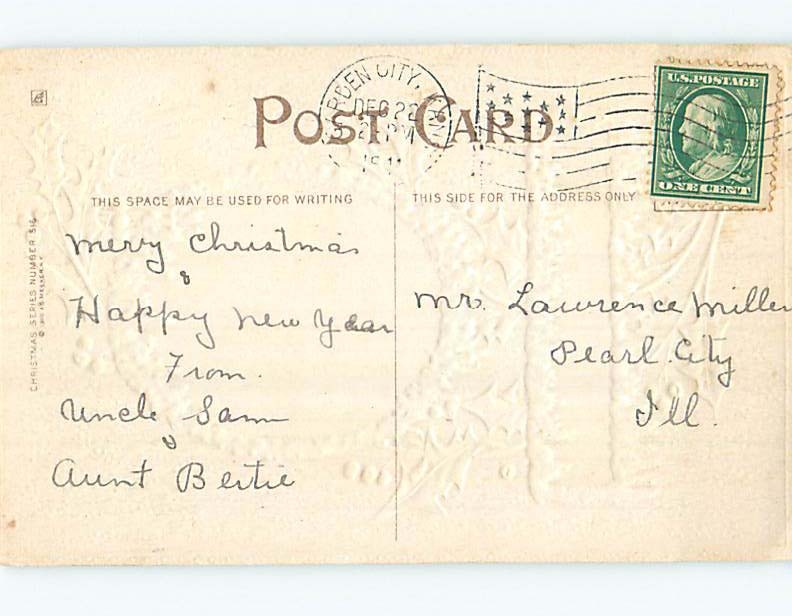 U.S. POSTAGE
ONE CENT
RDEN CITY, KAN
DEC 22
2 PM
1911
POST CARD
THIS SPACE MAY BE USED FOR WRITING
THIS SIDE FOR THE ADDRESS ONLY
CHRISTMAS SERIES NUMBER 516
Merry Christmas
&
Happy New Year
From.
Uncle Sam
&
Aunt Bertie
Mr. Lawrence Miller
Pearl City
Ill.